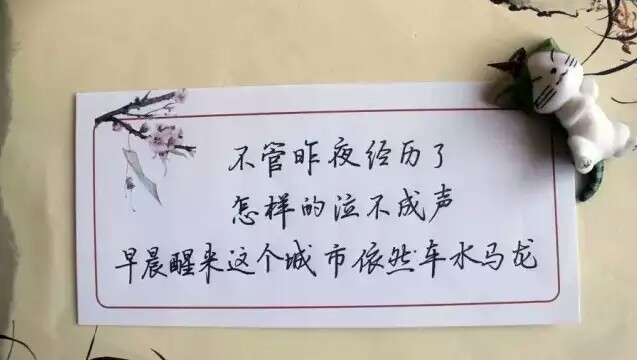 不管昨夜经历了
怎样的泣不成声
早晨醒来这个城市依然车水马龙